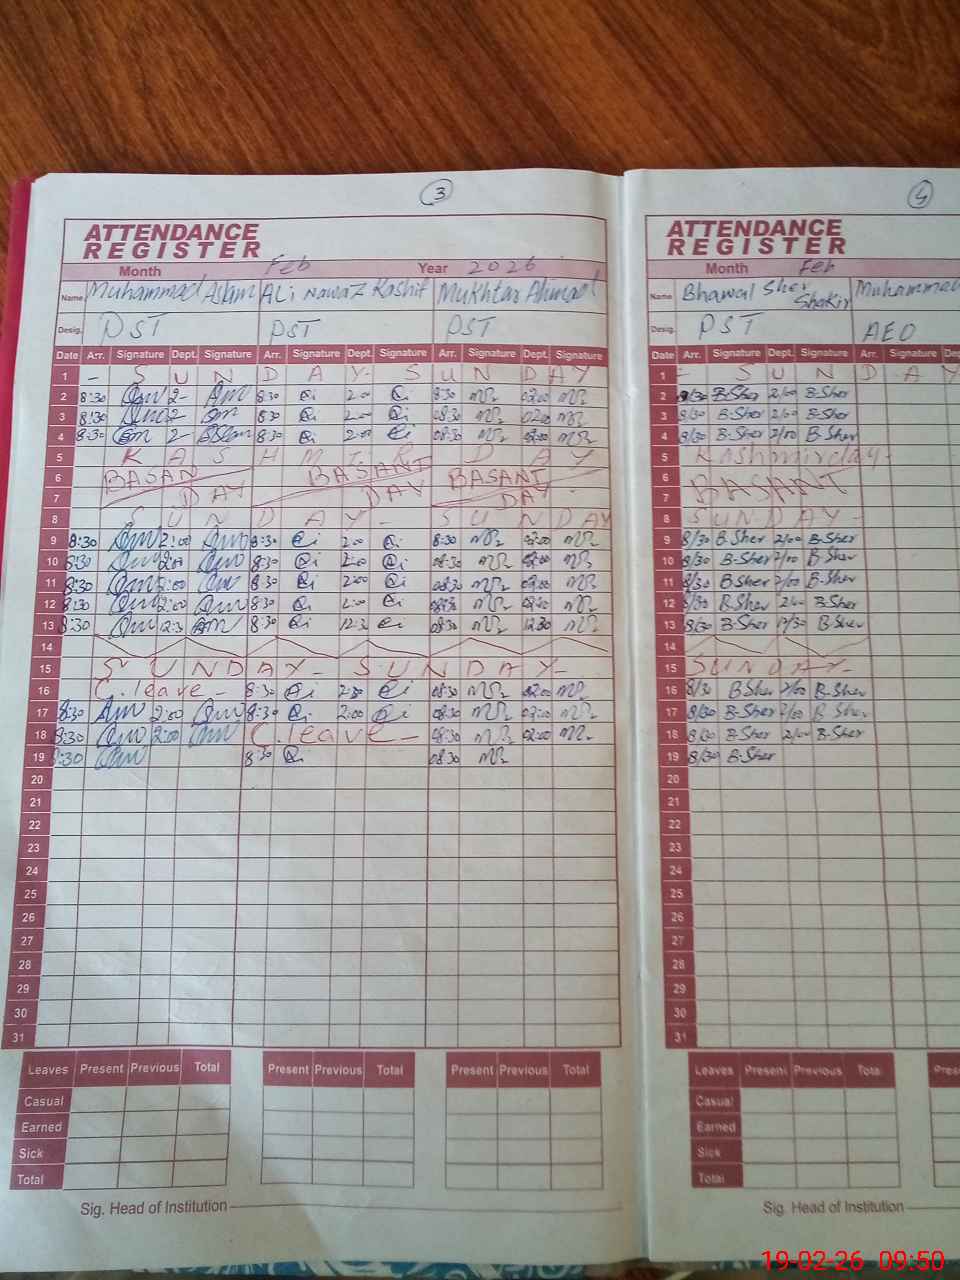 3
ATTENDANCE
REGISTER
Month Feb Year 2026
Name Muhammad Aslam ALi Nawaz Kashif Mukhtar Ahmad
Desig. PST PST PST
Date Arr. Signature Dept. Signature Arr. Signature Dept. Signature Arr. Signature Dept. Signature
1 - SUNDAY- SUNDAY
2 8:30 2- 8:30 2:00 8:30 02:00
3 8:30 2 8:30 2:00 08:30 02:00
4 8:30 2 8:30 2:00 08:30 02:00
5 KASHMIR DAY
6 BASAN BASANT BASANT
7 DAY DAY DAY
8 SUNDAY- SUNDAY
9 8:30 2:00 8:30 2:00 8:30 02:00
10 8:30 2:00 8:30 2:00 08:30 02:00
11 8:30 2:00 8:30 2:00 08:30 02:00
12 8:30 2:00 8:30 2:00 08:30 02:00
13 8:30 12:3 8:30 12:3 08:30 12:30
14
15 SUNDAY- SUNDAY-
16 C.leave- 8:30 2:00 08:30 02:00
17 8:30 2:00 8:30 2:00 08:30 02:00
18 8:30 2:00 C.leave- 08:30 02:00
19 8:30 8:30 08:30
20
21
22
23
24
25
26
27
28
29
30
31
Leaves Present Previous Total Present Previous Total Present Previous Total
Casual
Earned
Sick
Total
Sig. Head of Institution
4
ATTENDANCE
REGISTER
Month Feb
Name Bhawal Sher Shakir Muhammad
Desig. PST AEO
Date Arr. Signature Dept. Signature Arr. Signature
1 - SUNDAY
2 8/30 B-Sher 2/00 B-Sher
3 8/30 B-Sher 2/00 B-Sher
4 8/30 B-Sher 2/00 B-Sher
5 Kashmir day-
6 BASANT
7
8 SUNDAY-
9 8/30 B-Sher 2/00 B-Sher
10 8/30 B-Sher 2/00 B-Sher
11 8/30 B-Sher 2/00 B-Sher
12 8/30 B-Sher 2/00 B-Sher
13 8/30 B-Sher 12/30 B-Sher
14
15 SUNDAY-
16 8/30 B-Sher 2/00 B-Sher
17 8/30 B-Sher 2/00 B-Sher
18 8/30 B-Sher 2/00 B-Sher
19 8/30 B-Sher
20
21
22
23
24
25
26
27
28
29
30
31
Leaves Present Previous Total
Casual
Earned
Sick
Total
Sig. Head of Institution
19-02-26 09:50